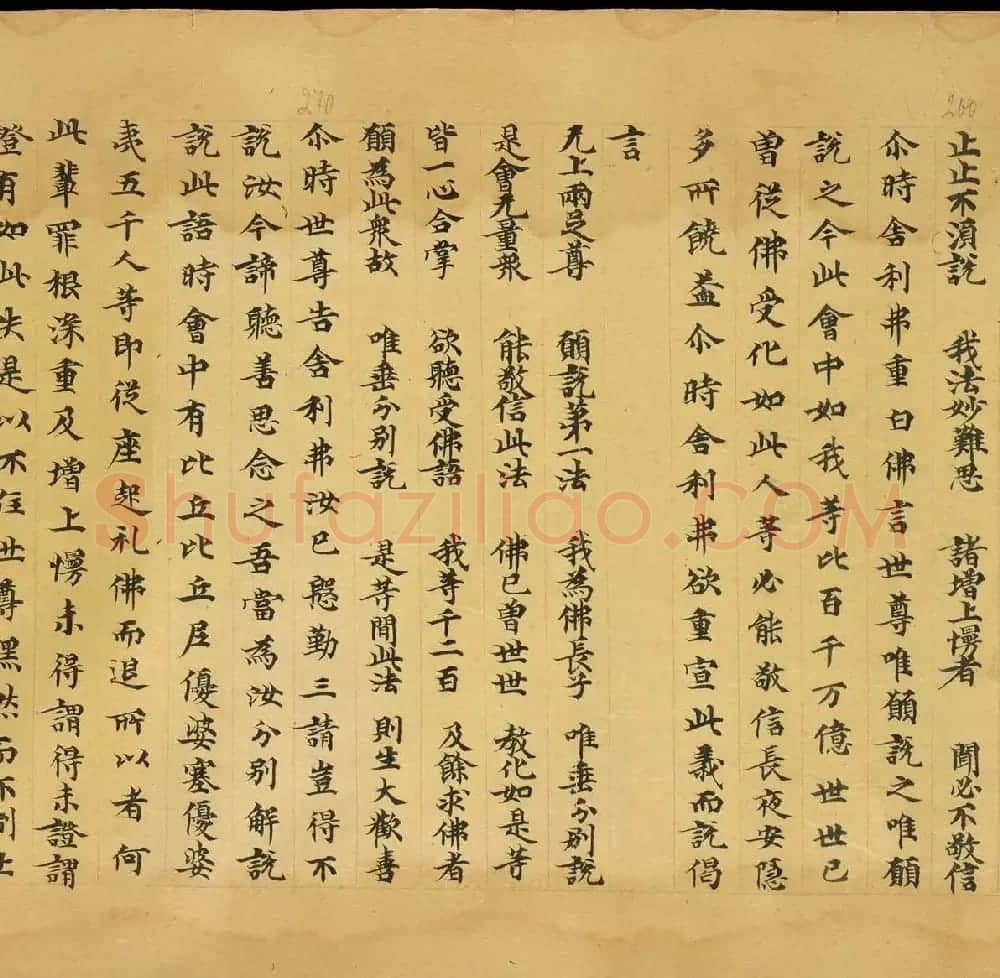 260
止止不湏說 我法妙難思 諸増上慢者 聞必不敬信
尒時舍利弗重白佛言世尊唯願說之唯願
說之今此會中如我等比百千万億世世已
曽從佛受化如此人等必能敬信長夜安隱
多所饒益尒時舍利弗欲重宣此義而說偈
言
无上兩足尊 願說第一法 我為佛長子 唯垂分別說
是會无量衆 能敬信此法 佛已曽世世 教化如是等
皆一心合掌 欲聽受佛語 我等千二百 及餘求佛者
願為此衆故 唯垂分別說 是等聞此法 則生大歡喜
270
尒時世尊告舍利弗汝已慇勤三請豈得不
說汝今諦聽善思念之吾當為汝分別解說
說此語時會中有比丘比丘尼優婆塞優婆
夷五千人等即從座起礼佛而退所以者何
此輩罪根深重及増上慢未得謂得未證謂
證有如此失是以不住世尊黙然而不制止
Shufaziliao.COM